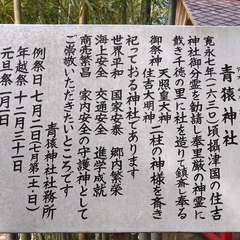 青猿神社
寛永七年(一六三〇)頃摂津国の住吉
神社御分霊を勧請し奉里蔵の神霊に
戴き千徳の里に社を造りて鎮斎し奉る
御祭神 天照皇大神
住吉大明神 二柱の神様を斎き
祀っておる神社であります
世界平和 国家安泰 郷内繁栄
海上安全 交通安全 進学成就
商売繁昌 家内安全の守護神として
ご崇敬いただきたいところです
青猿神社社務所
例祭日 七月二日(七月第一土・日)
年越祭 十二月三十一日
元旦祭 一月一日